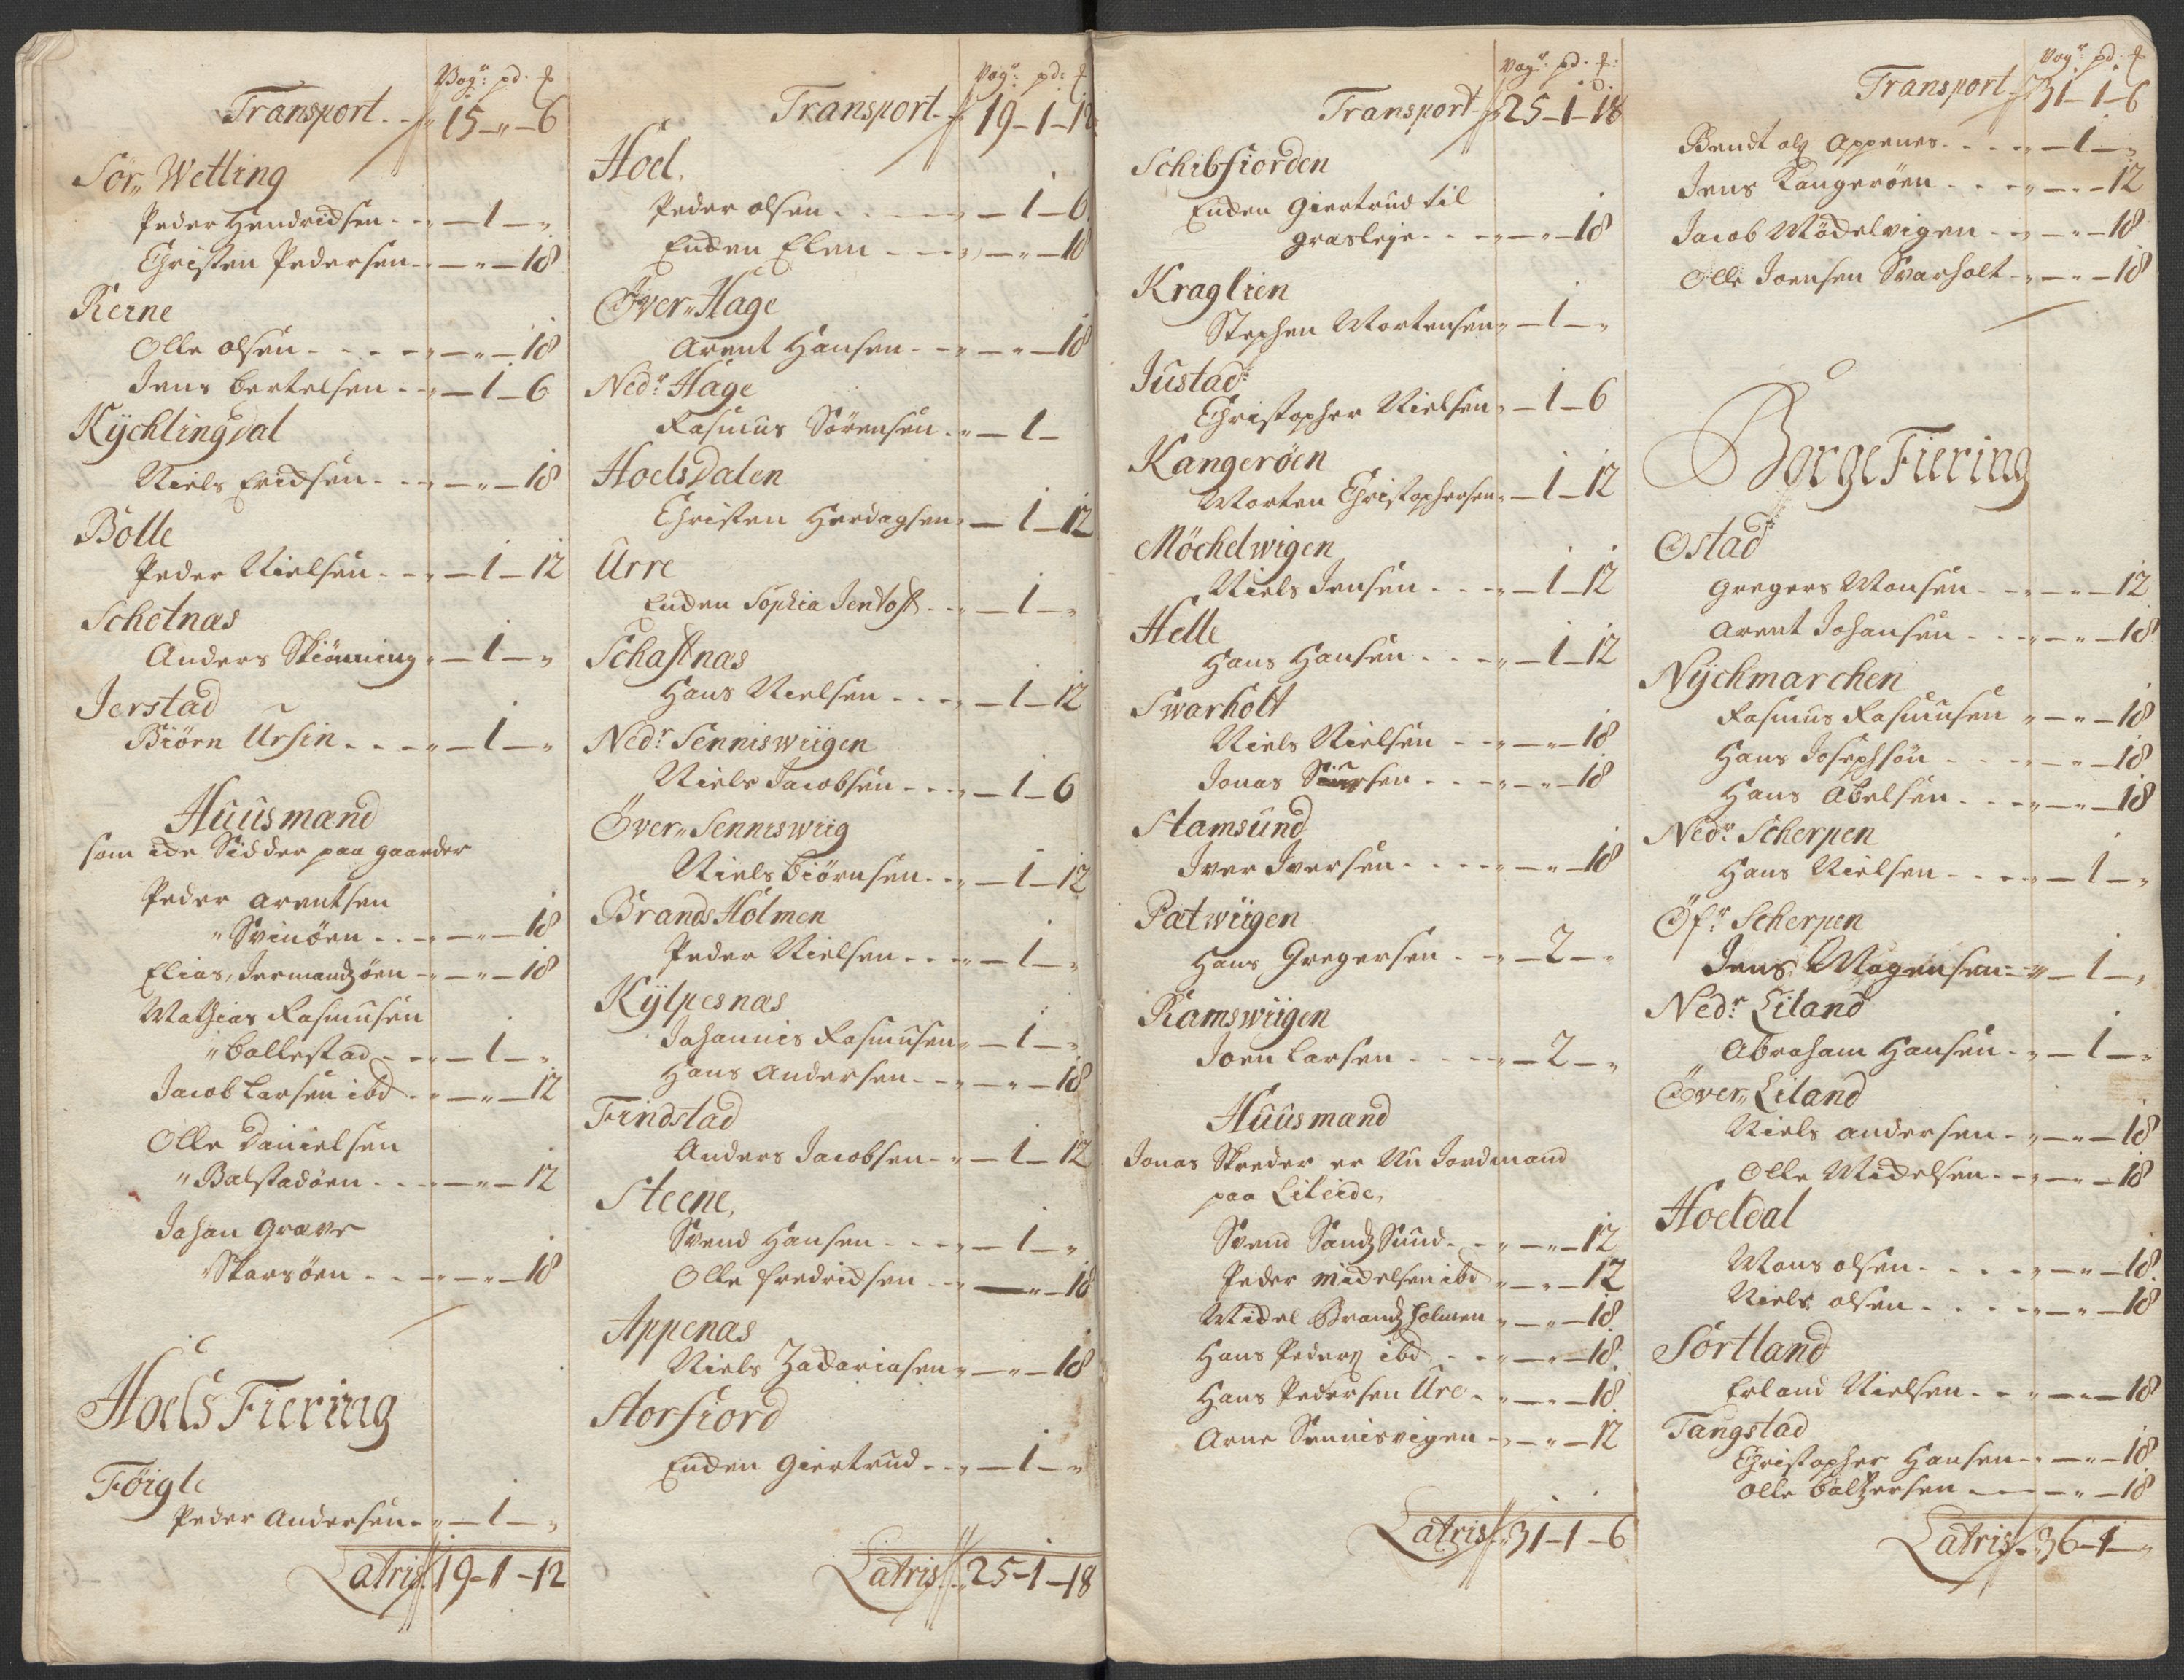 Vog: pd. ℔
Transport. 15 - " - 6
Sör„ Wetting
Peder Hendrichsen - 1 - "
Christen Pedersen - " - 18
Rerne
Olle olsen - " - 18
Jens bertelsen - 1 - 6
Kÿchlingdal
Niels Erichsen - " - 18
Bolle
Peder Nielsen - 1 - 12
Schotnas
Anders Skiönning - 1 - "
Jerstad
Biörn Ursin - 1 - "
Huusmænd
som icke Sidder paa gaarder
Peder arentsen
" Svinöen - " - 18
Elias, Jermandsöen - " - 18
Mathias Rasmusen
" ballestad - 1 - "
Jacob Larsen ibd - " - 12
Olle Danielsen
" Balstadöen - " - 12
Johan Grave
" Skarsöen - " - 18
Hoels Fiering
Föigle
Peder Andersen - 1 - "
Latris 19 - 1 - 12
Vog: pd: ℔
Transport. 19 - 1 - 12
Hoel.
Peder olsen - 1 - 6
Encken Elen - " - 18
Över„ Hage
Arent Hansen - " - 18
Nedr Hage
Rasmus Sörensen - 1 -
Hoelsdalen
Christen Herdagsen - 1 - 12
Urre
Encken Sophia Jentoft - 1 - "
Schaftnas
Hans Nielsen - 1 - 12
Nedr Senniswiigen
Niels Jacobsen - 1 - 6
Över„ Senniswiig
Niels biörnsen - 1 - 12
Brands Holmen
Peder Nielsen - 1 - "
Kÿlpesnas
Johannes Rasmusen - 1 - "
Hans Andersen - " - 18
Findstad
Anders Jacobsen - 1 - 12
Steene,
Svend Hansen - 1 - "
Olle fredrichsen - " - 18
Appenas
Niels Zachariasen - " - 18
Storfiord
Encken Giertrud - 1 - "
Latris 25 - 1 - 18
Vog: pd. ℔:
Transport 25 - 1 - 18
Schibfiorden
Encken Giertrud til
grasleje - " - 18
Kraglien
Stephen Mortensen - 1 - "
Justad
Christopher Nielsen - 1 - 6
Kangeröen
Morten Christophersen - 1 - 12
Möchelwigen
Niels Jensen - 1 - 12
Helle
Hans Hansen - 1 - 12
Swarholt
Niels Nielsen - " - 18
Jonas - " - 18
Stamsund
Iver Iversen - " - 18
Patwiigen
Hans Gregersen - 2 - "
Ramswiigen
Joen Larsen - 2 - "
Huusmænd
Jonas Skreder er Nu Jordmand
paa Lileide,
Svend Sandsund - " - 12
Peder Michelsen ibd - " - 12
Michel Brandsholmen - " - 18
Hans Peders ibd - " - 18
Hans Pedersen Ure - " - 18
Arne Sennisvigen - " - 12
Latris 31 - 1 - 6
Vog: pd. ℔
Transport 31 - 1 - 6
Bendt ols Appenes - 1 - "
Jens Kangeröen - " - 12
Jacob Möchelvigen - " - 18
Olle Joensen Svarholt - " - 18
Borge Fiering
Ostad
Gregers Monsen - " - 12
Arent Johansen - " - 18
Nÿchmarchen
Rasmus Rasmusen - " - 18
Hans Josephsön - " - 18
Hans Abelsen - " - 18
Nedr Scherpen
Hans Nielsen - 1 - "
Öfr Scherpen
Jens Mogensen - 1 - "
Nedr Liland
Abraham Hansen - 1 - "
Över„ Liland
Niels andersen - " - 18
Olle Michelsen - " - 18
Hoeldal
Mons olsen - " - 18
Niels olsen - " - 18
Sortland
Erland Nielsen - " - 18
Tangstad
Christopher Hansen - " - 18
Olle baltzersen - " - 18
Latris 36 - 1 - "